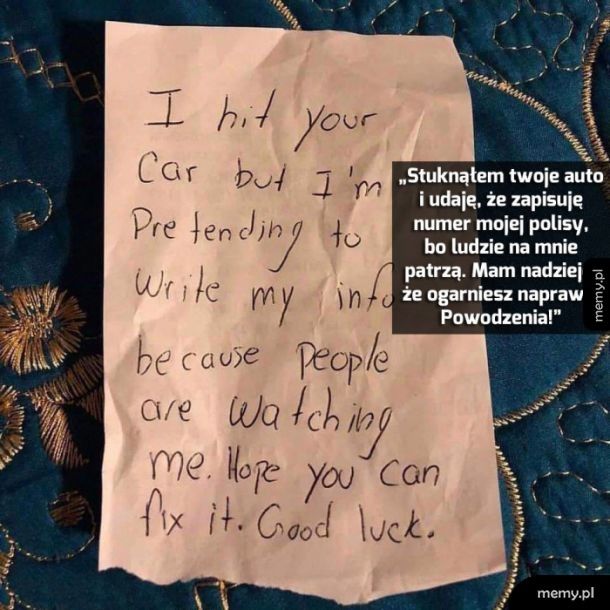 I hit your
Car but I'm
Pretending to
Write my info
because People
are watching
me. Hope you can
fix it. Good luck.
„Stuknąłem twoje auto
i udaję, że zapisuję
numer mojej polisy,
bo ludzie na mnie
patrzą. Mam nadzieję
że ogarniesz napraw
Powodzenia!”
memy.pl
memy.pl